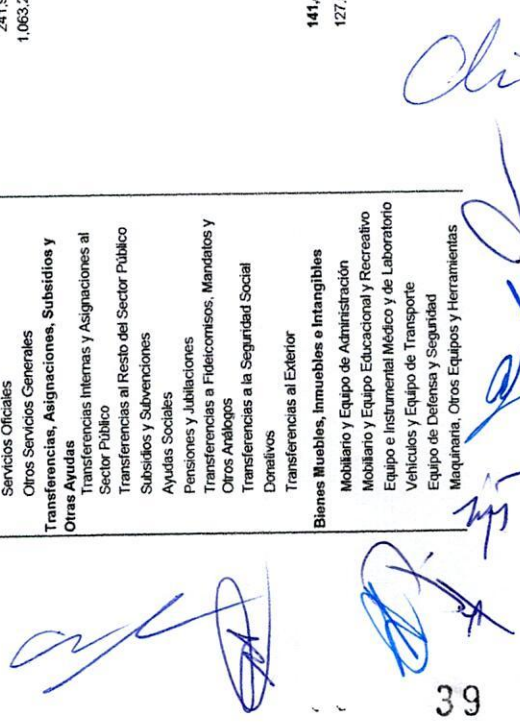 Servicios Oficiales
Otros Servicios Generales
Transferencias, Asignaciones, Subsidios y
Otras Ayudas
Transferencias Internas y Asignaciones al
Sector Público
Transferencias al Resto del Sector Público
Subsidios y Subvenciones
Ayudas Sociales
Pensiones y Jubilaciones
Transferencias a Fideicomisos, Mandatos y
Otros Análogos
Transferencias a la Seguridad Social
Donativos
Transferencias al Exterior
Bienes Muebles, Inmuebles e Intangibles
Mobiliario y Equipo de Administración
Mobiliario y Equipo Educacional y Recreativo
Equipo e Instrumental Médico y de Laboratorio
Vehículos y Equipo de Transporte
Equipo de Defensa y Seguridad
Maquinaria, Otros Equipos y Herramientas
39